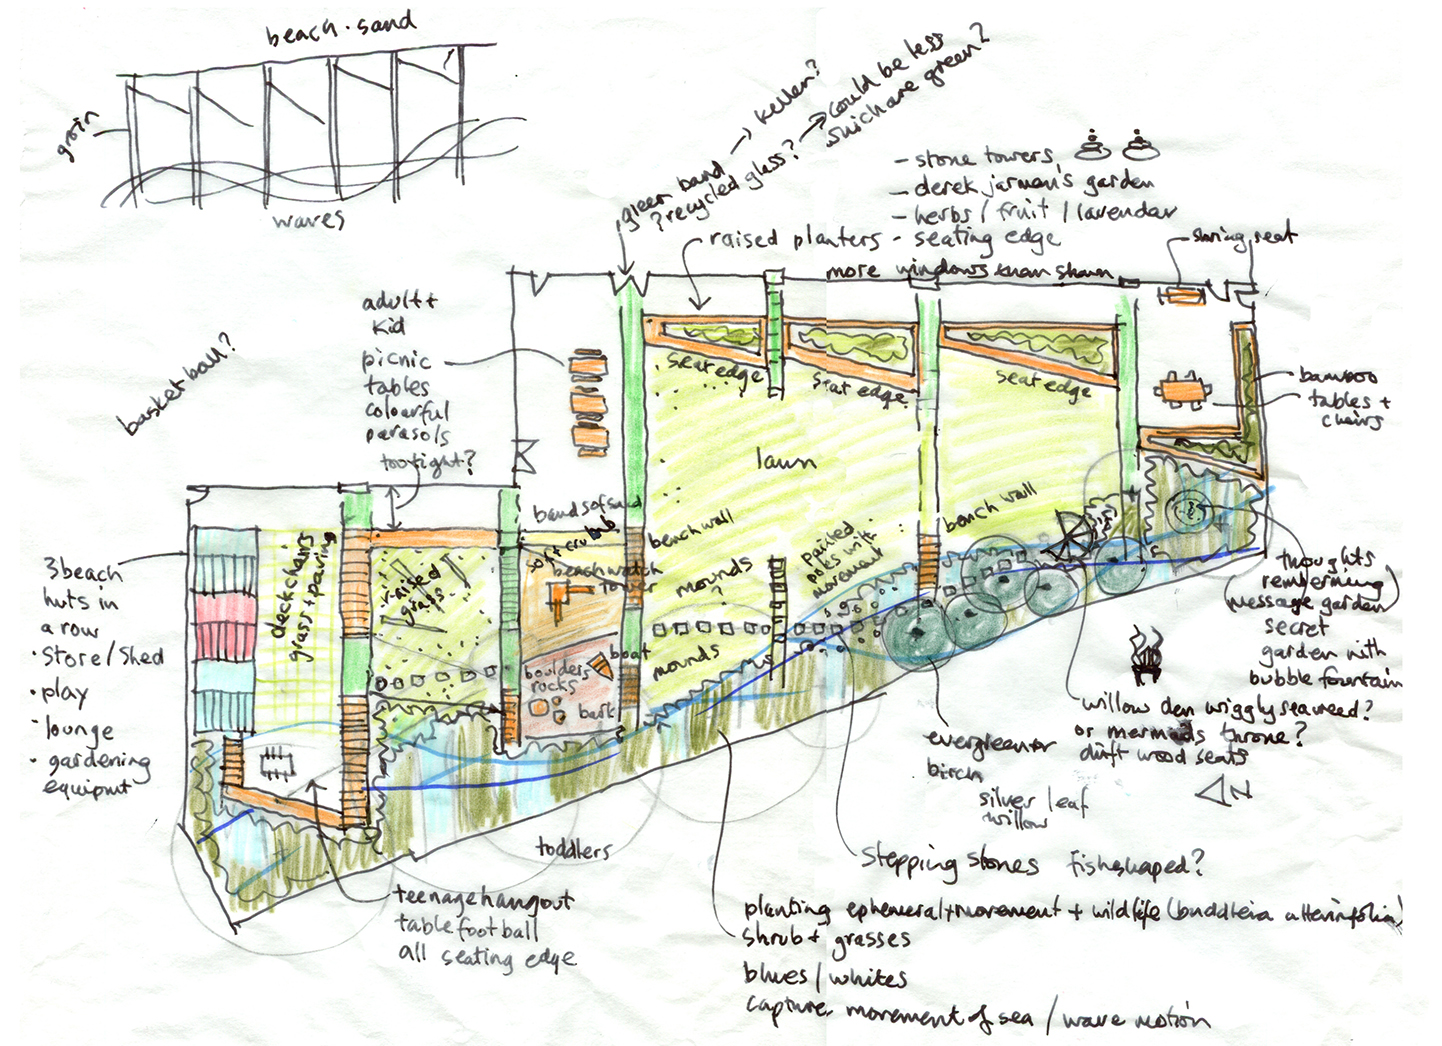 beach · sand
groin
waves
green band → Keller?
? recycled glass? → could be less
such are green?
- stone towers,
- derek jarman's garden
- herbs / fruit / lavendar
raised planters - seating edge
more windows than shawn
swing seat
adult +
kid
picnic
tables
colourful
parasols
too tight?
basket ball?
seat edge
seat edge
seat edge
bamboo
tables +
chairs
lawn
bands of sand
beach wall
beach wall
soft crumb
beach watch
tower
deckchairs
grass + paving
raised
grass
mounds
?
mounds
painted
poles with
movement
boat
boulders
rocks
bark
3 beach
huts in
a row
· store / shed
· play
- lounge
· gardening
equipmt
thoughts
rembering
(message garden)
secret
garden with
bubble fountain
willow den wiggly seaweed?
or mermaids throne?
drift wood seats
N
evergreen or
birch
silver leaf
willow
stepping stones fishshaped?
toddlers
teenage hangout
table football
all seating edge
planting ephemeral + movement + wildlife (buddleia alternifolia)
shrub + grasses
blues / whites
capture movement of sea / wave motion